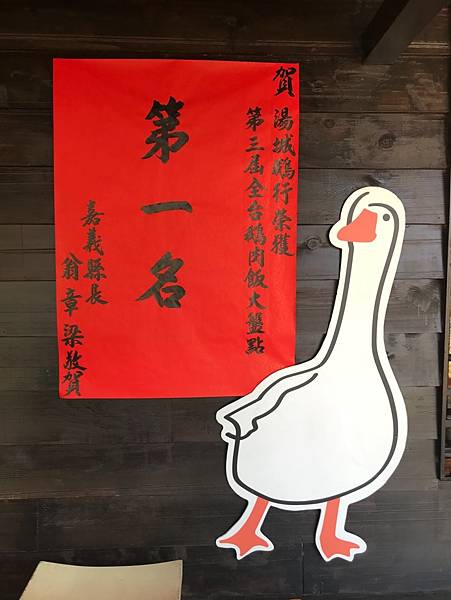 賀湯城鵝行榮獲
第三屆全台鵝肉飯大盤點
第一名
嘉義縣長
翁章梁敬賀